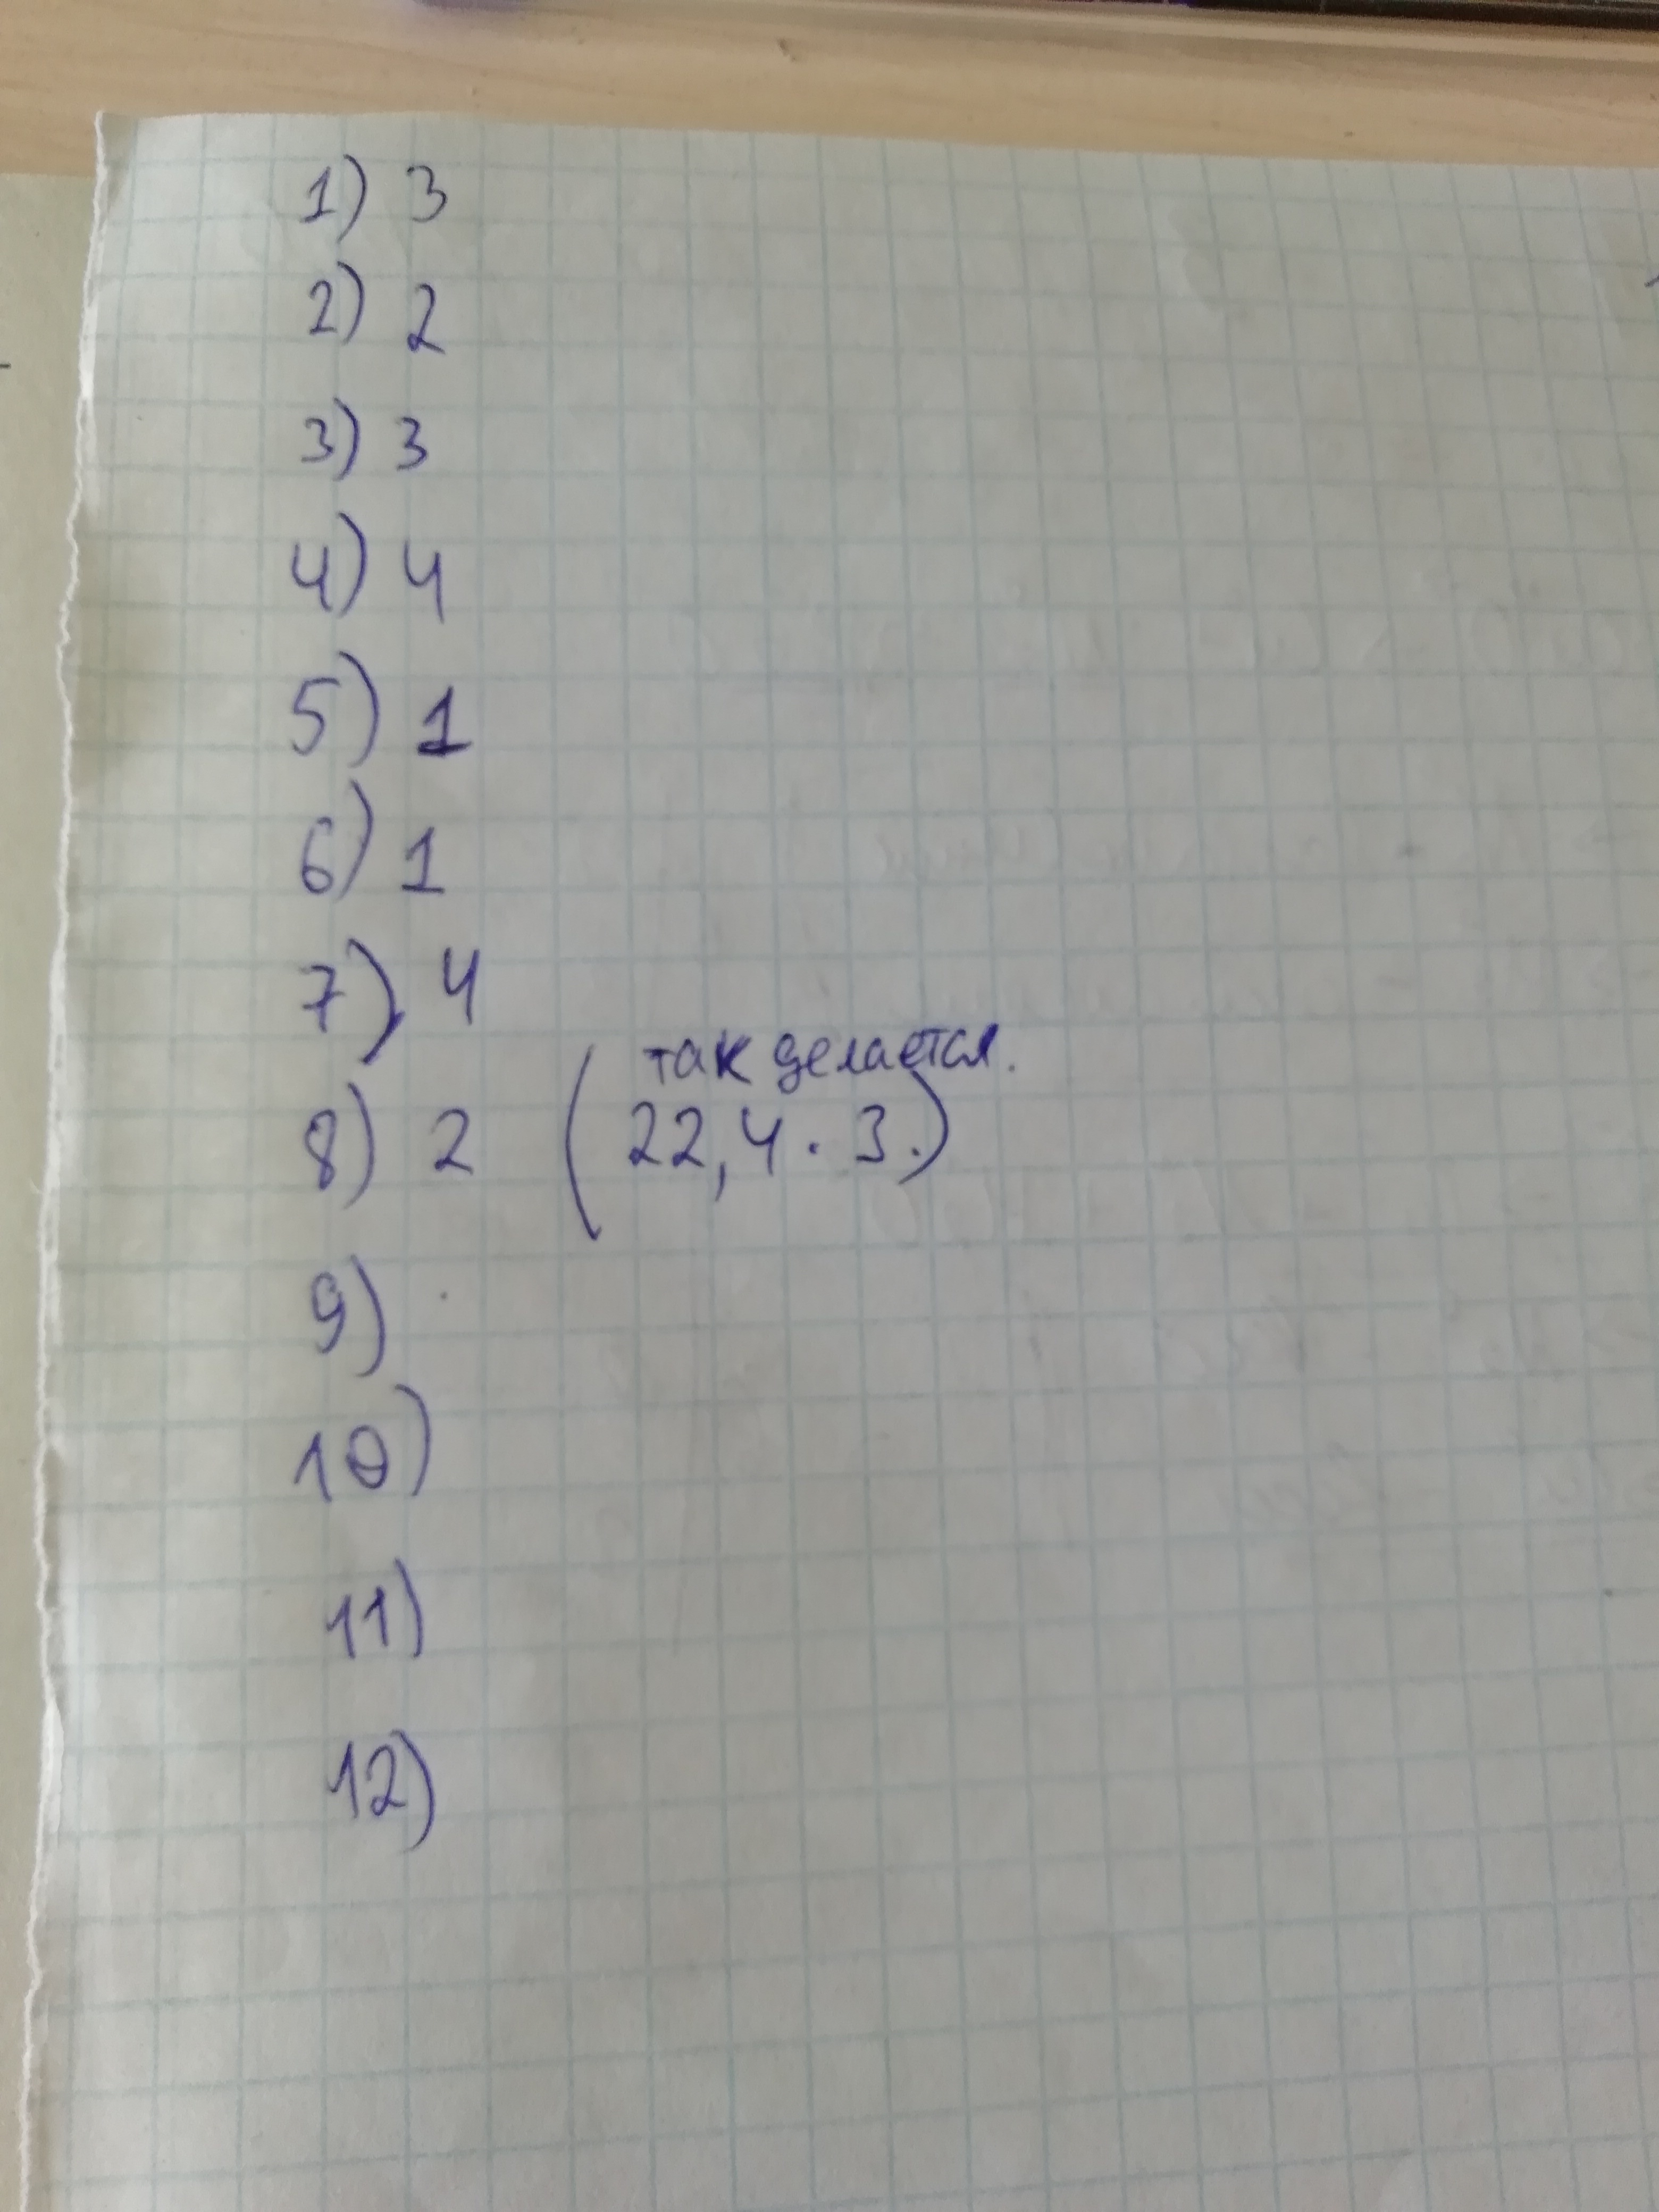 1) 3
2) 2
3) 3
4) 4
5) 1
6) 1
7) 4
так делается.
8) 2 (22,4 · 3.)
9)
10)
11)
12)